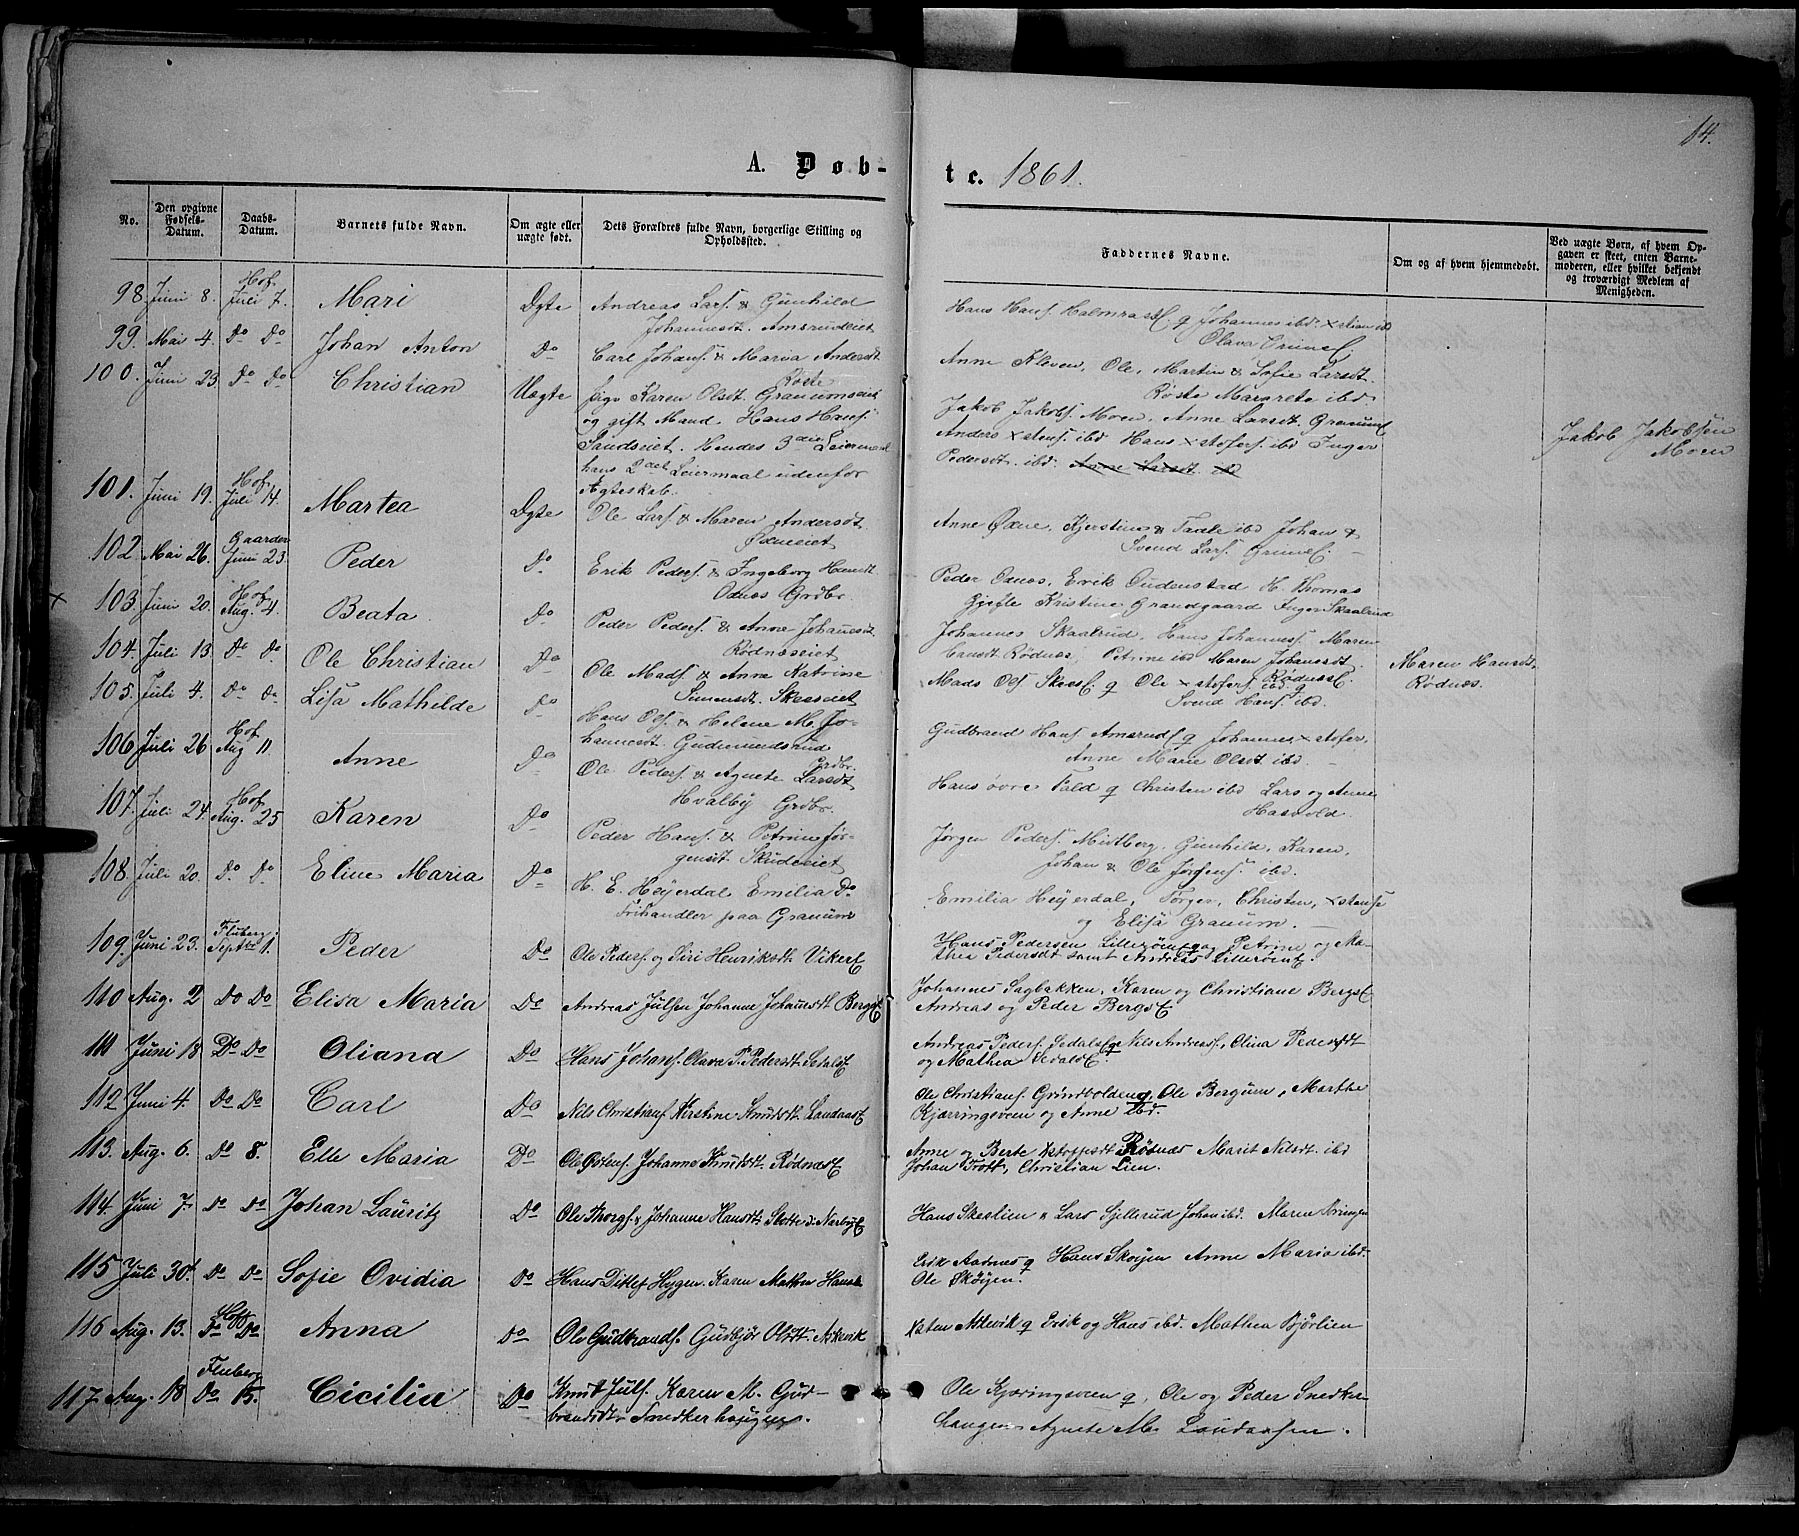 14.
A. Døb-
te. 1861.
No.
Den opgivne Fødsels-Datum.
Daabs-Datum.
Barnets fulde Navn.
Om ægte eller uægte født.
Dets Forældres fulde Navn, borgerlige Stilling og Opholdssted.
Faddernes Navne.
Om og af hvem hjemmedøbt.
Ved uægte Børn, af hvem Opgaven er skeet, enten Barnemoderen, eller hvilket bekjendt og troværdigt Medlem af Menigheden.
98. Juni 8. Hof Juli 7. Mari Ægte Andreas Lars. & Gunhild
Johannesdt. Amsrudeiet
Hans Hans. Halmrast q Johannes ibd. xstian ibd
Olava
99. Mai 4. Do Do Johan Anton Do Carl Johans. & Maria Andersdt
Røste
Anne Kleven, Ole, Martin & Sofie Larsdt.
Røste Mararete ibd
100. Juni 23. Do Do Christian Uægte Pige Karen Olsdt. Granumseiet
og gift Mand. Hans Hans.
Sandseiet. Hendes 3die Leiermaal
hans 2det Leiermaal udenfor
Ægteskab.
Jakob Jakobs. Moen, Anne Larsdt Granum
Anders xstens. ibd Hans xstofers. ibd Inger
Pedersdt. ibd. Anne Larsdt. ibd
Jakob Jakobsen
Moen
101. Juni 19. Hof Juli 14. Martea Ægte Ole Lars. & Maren Andersdt.
Øxneeiet
Anne Øxne, Kjerstine & Taale ibd Johan &
Svend Lars.
102. Mai 26. Gaarder Juni 23. Peder Do Erik Peders. & Ingeborg Hansdt
Odnæs Grdbr.
Peder Odnæs, Erik Oudenstad H. Thomas
Gjefle Kristine Grandgaard Inger Skaalrud
103. Juni 20. Hof Aug. 4. Beata Do Peder Peders. & Anne Johanesdt.
Rødnæseiet
Johannes Skaalrud, Hans Johanness. Maren
Hansdt. Rødnæs, Petrine ibd Maren Johanesdt.
Rødnæs
Maren Hansdt.
Rødnæs.
104. Juli 13. Do Do Ole Christian Do Ole Mads. & Anne Katrine
Simensdt. Skeseiet
Mads Ols. q Ole xstofers. ibd q
Svend Hans. ibd.
105. Juli 4. Do Do Lisa Mathilde Do Hans Ols. & Helene M. Jo-
hannesdt. Gudmundsrud
Grdbr.
Gudbrand Hans. Amsrud q Johannes xstofer,
Anne Marie Olsdt ibd.
106. Juli 26. Hof Aug 11. Anne Do Ole Peders. & Agnete Larsdt
Hvalby Grdbr.
Hans øvre Fald q Christen ibd Lars og Anne
Hasvold.
107. Juli 24. Hof Aug. 25 Karen Do Peder Hans. & Petrine Jør-
gensdt. Skudeeiet
Jørgen Peders. Midtberg. Gunhild, Karen,
Johan & Ole Jørgens. ibd.
108. Juli 20. Do Do Eline Maria Do H. E. Heyerdal Emilia Do
Frihandler paa Granum
Emilia Heyerdal, Torger, Christen, xstense
og Elisa Granum.
109. Juni 23. Fluberg Septbr 1. Peder Do Ole Peders. og Siri Henriksdt. Viker
Hans Pedersen Lillerøen q og Petrine og Ma-
thea Pedersdt samt Andreas Lillerøen.
110 Aug. 2 Do Do Elisa Maria Do Andreas Julsen Johanne Johanesdt. Bergs
Johannes Sagbakken, Karen og Christiane Bergs
Andreas og Peder Bergs
111 Juni 18 Do Do Oliana Do Hans Johans. Olava P. Pedersdt. Setals
Andreas Peders. Sedals q Nils Andreass., Olina Pedersdt
og Mathea
112 Juni 4. Do Do Carl Do Nils Christians. Kirstine Knudsdt. Landaas
Ole Christians. Grindbolden q, Ole Bergum, Marthe
Kjærringsveen og Anne ibd.
113. Aug. 6. Do 8. Elle Maria Do Ole Østens. Johanne Knudsdt. Rødnæs
Anne og Berte Rødnæs Marit Nilsdt. ibd
Johan Trott, Christian Lien.
114. Juni 7. Do Do Johan Lauritz Do Ole Thorgs. & Johanne Hansdt. Slotte
Hans Skeslien & Lars Gjillerud Johan ibd. Maren
115 Juli 30. Do Do Sofie Ovidia Do Hans Ditlef Hygen. Karen Mathea
Erik Aadnes q Hans Skøyen Anne Maria ibd.
Ole Skøyen.
116 Aug. 13. Hof Do Do Anna Do Ole Gudbrands. Gudbjør Olsdt. Askevik
xsten Askevik q Erik og Hans ibd. Mathea Bjørlien
117. Aug. 18 Fluberg Do 15. Cicilia Do Knud Juls. Karen M. Gud-
brandsdt. Snedkerhaugen.
Ole Kjæringsveen q, Ole og Peder Snedker-
haugen Agnete M. Landaasen.